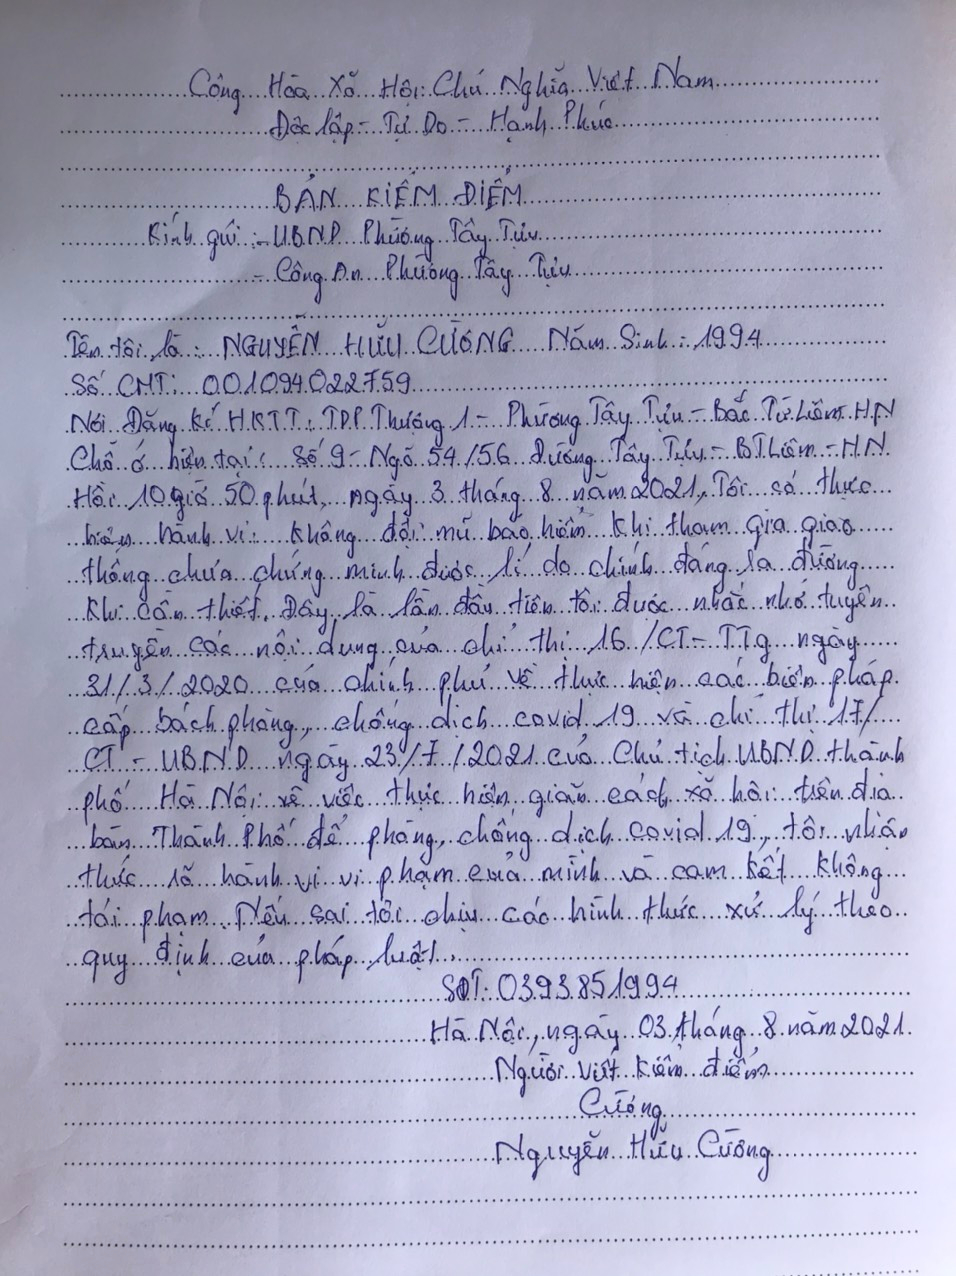 Công Hòa Xã Hội Chủ Nghĩa Việt Nam
Độc lập - Tự Do - Hạnh Phúc
BẢN KIỂM ĐIỂM
Kính gửi : - U.B.N.D Phường Tây Tựu
- Công An Phường Tây Tựu
Tên tôi là : NGUYỄN HỮU CƯỜNG Năm Sinh : 1994
Số CMT: 001094022759
Nơi Đăng kí H.K.T.T: T.D.P. Thượng 1 - Phường Tây Tựu - Bắc Từ Liêm. H.N
Chỗ ở hiện tại : Số 9 - Ngõ 54/56 Đường Tây Tựu - B.T.Liêm - H.N.
Hồi 10 giờ 50 phút, ngày 3 tháng 8 năm 2021, Tôi có thực
hiện hành vi: Không đội mũ bảo hiểm khi tham gia giao
thông chưa chứng minh được lí do chính đáng ra đường
khi cần thiết. Đây là lần đầu tiên tôi được nhắc nhở tuyên
truyền các nội dung của chỉ thị 16/CT-TTg ngày
31/3/2020 của chính phủ về thực hiện các biện pháp
cấp bách phòng, chống dịch covid 19 và chỉ thị 17/
CT - UBND ngày 23/7/2021 của Chủ tịch UBND thành
phố Hà Nội về việc thực hiện giãn cách xã hội trên địa
bàn Thành Phố để phòng, chống dịch covid 19, tôi nhận
thức rõ hành vi vi phạm của mình và cam kết không
tái phạm. Nếu sai tôi chịu các hình thức xử lý theo
quy định của pháp luật.
SĐT: 0393851994
Hà Nội, ngày 03 tháng 8 năm 2021.
Người viết kiểm điểm
Cường
Nguyễn Hữu Cường